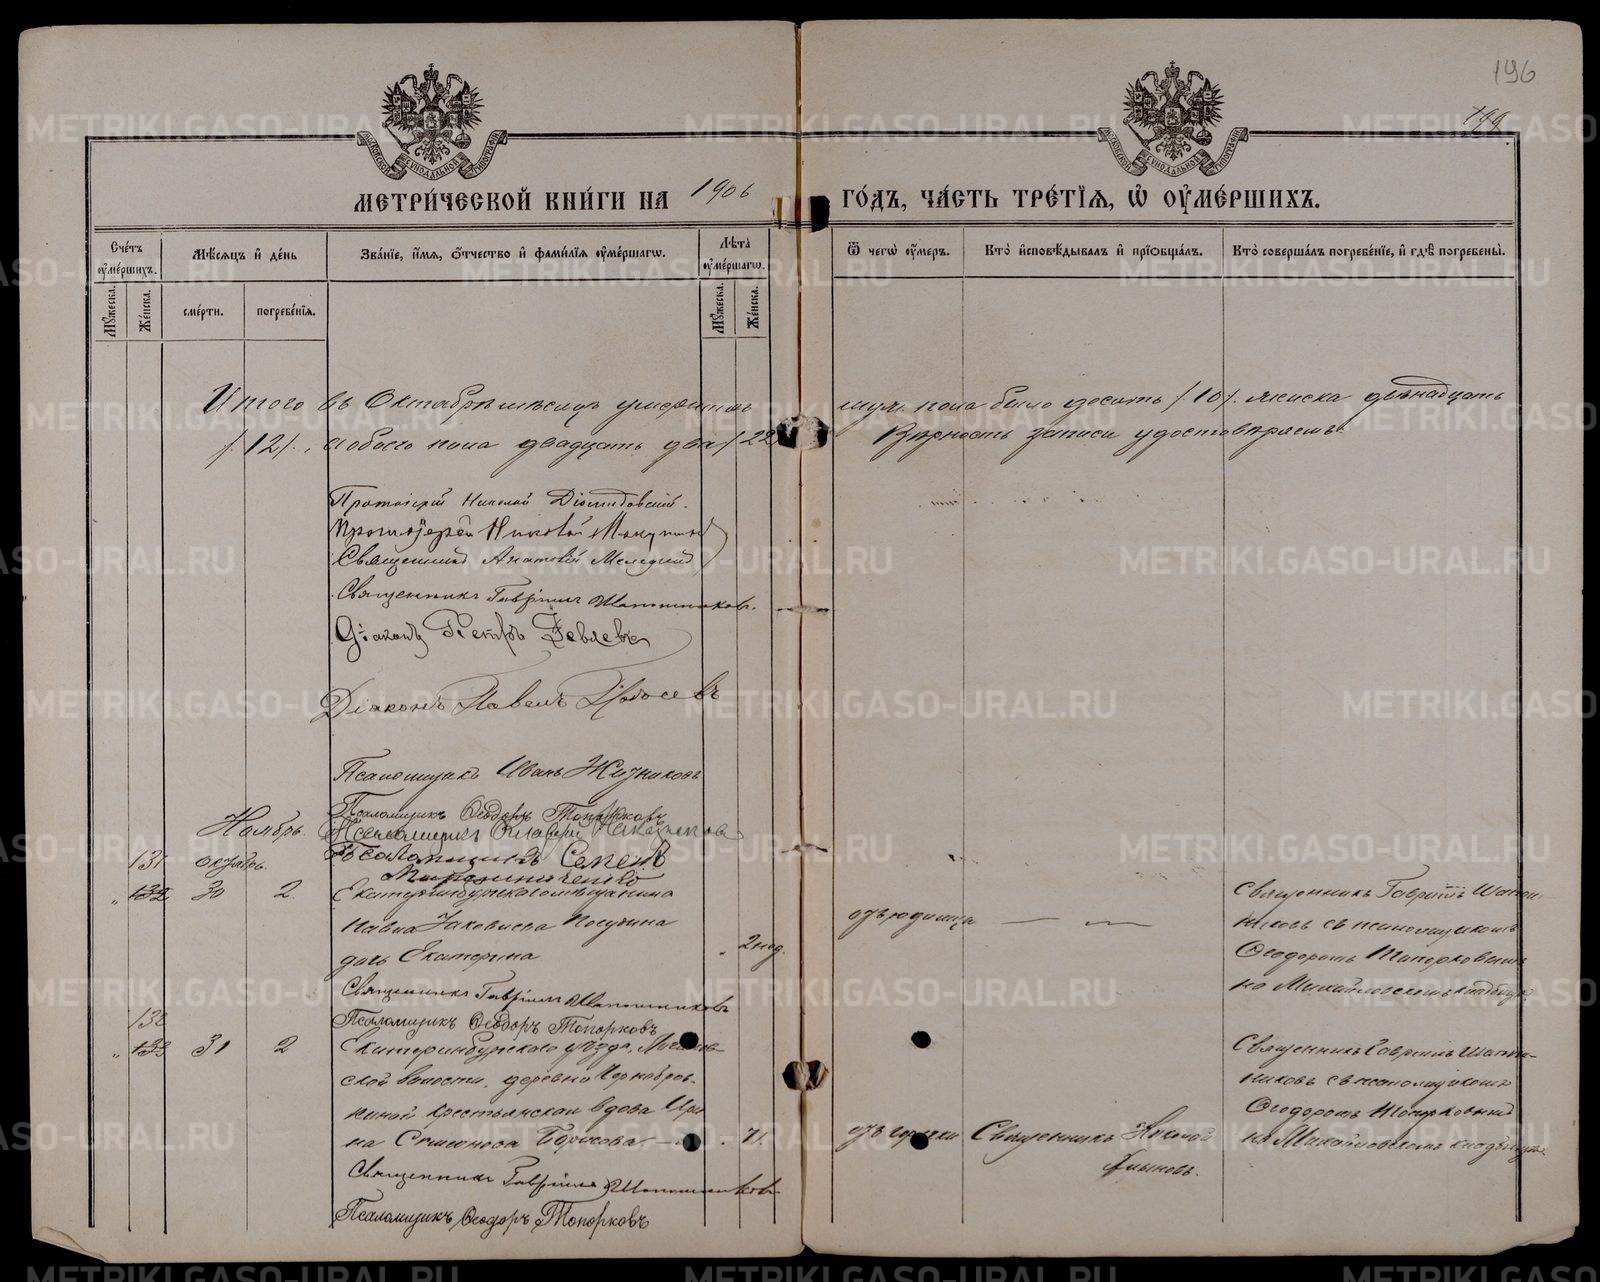 196
199
МЕТРИ́ЧЕСКОЙ КНИ́ГИ НА 1906 ГО́ДЪ, ЧА́СТЬ ТРЕ́ТІЯ, Ѽ ОУ҆МЕ́РШИХЪ.
МОСКОВСКОЙ СѴНОДАЛЬНОЙ ТИПОГРАФІИ
МОСКОВСКОЙ СѴНОДАЛЬНОЙ ТИПОГРАФІИ
Сче́тъ оу҆ме́ршихъ.
Мѣ́сяцъ и҆ де́нь
Зва́ніе, и҆́мя, ѻ҆́тчество и҆ фами́лія оу҆ме́ршагѡ.
Лѣ́та оу҆ме́ршагѡ.
Ѿ чегѡ̀ оу҆́меръ.
Кто̀ и҆сповѣ́дывалъ и҆ прїѡбща́лъ.
Кто̀ соверша́лъ погребе́ніе, и҆ гдѣ̀ погребены̀.
Мꙋ́жеска.
Же́нска.
сме́рти.
погребе́нія.
Мꙋ́жеска.
Же́нска.
Итого въ Октябрѣ мѣсяцѣ умершихъ муж. пола было десять /10/. женска двѣнадцать
/12/., обоего пола двадцать два /22/ Вѣрность записи удостовѣряемъ.
Протоіерей Николай Діомидовскій.
Протоіерей Николай
Священникъ Анатолій
Священникъ Гавріилъ Шапошниковъ.
Діаконъ Петръ
Діаконъ Павелъ
Псаломщикъ Иванъ
Псаломщикъ Ѳеодоръ Топорковъ
Ноябрь. Псаломщикъ
131 октябрь. Псаломщикъ Семенъ
Мирошниченко
„ 132 30 2. Екатеринбургскаго мѣщанина
Павла Іаковлева
дочь Екатерина „ 2 нед.
отъ родимца — „ —
Священникъ Гавріилъ Шапош-
никовъ съ псаломщикомъ
Ѳеодоромъ Топорковымъ
на Михайловскомъ кладбищѣ
Священникъ Гавріилъ Шапошниковъ
Псаломщикъ Ѳеодоръ Топорковъ
132
„ 133 31 2 Екатеринбургскаго уѣзда,
ской волости, деревни
крестьянская вдова Ири-
на Симонова Борисова — „ 71.
отъ горячки Священникъ Николай
Священникъ Гавріилъ Шапош-
никовъ съ псаломщикомъ
Ѳеодоромъ Топорковымъ
на Михайловскомъ кладбищѣ
Священникъ Гавріилъ Шапошниковъ
Псаломщикъ Ѳеодоръ Топорковъ
METRIKI.GASO-URAL.RU